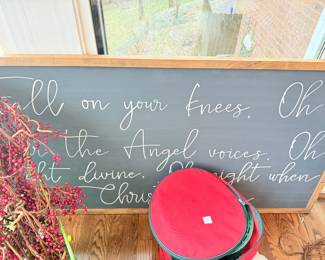 Fall on your knees. Oh
the Angel voices. Oh
divine. when
Chris